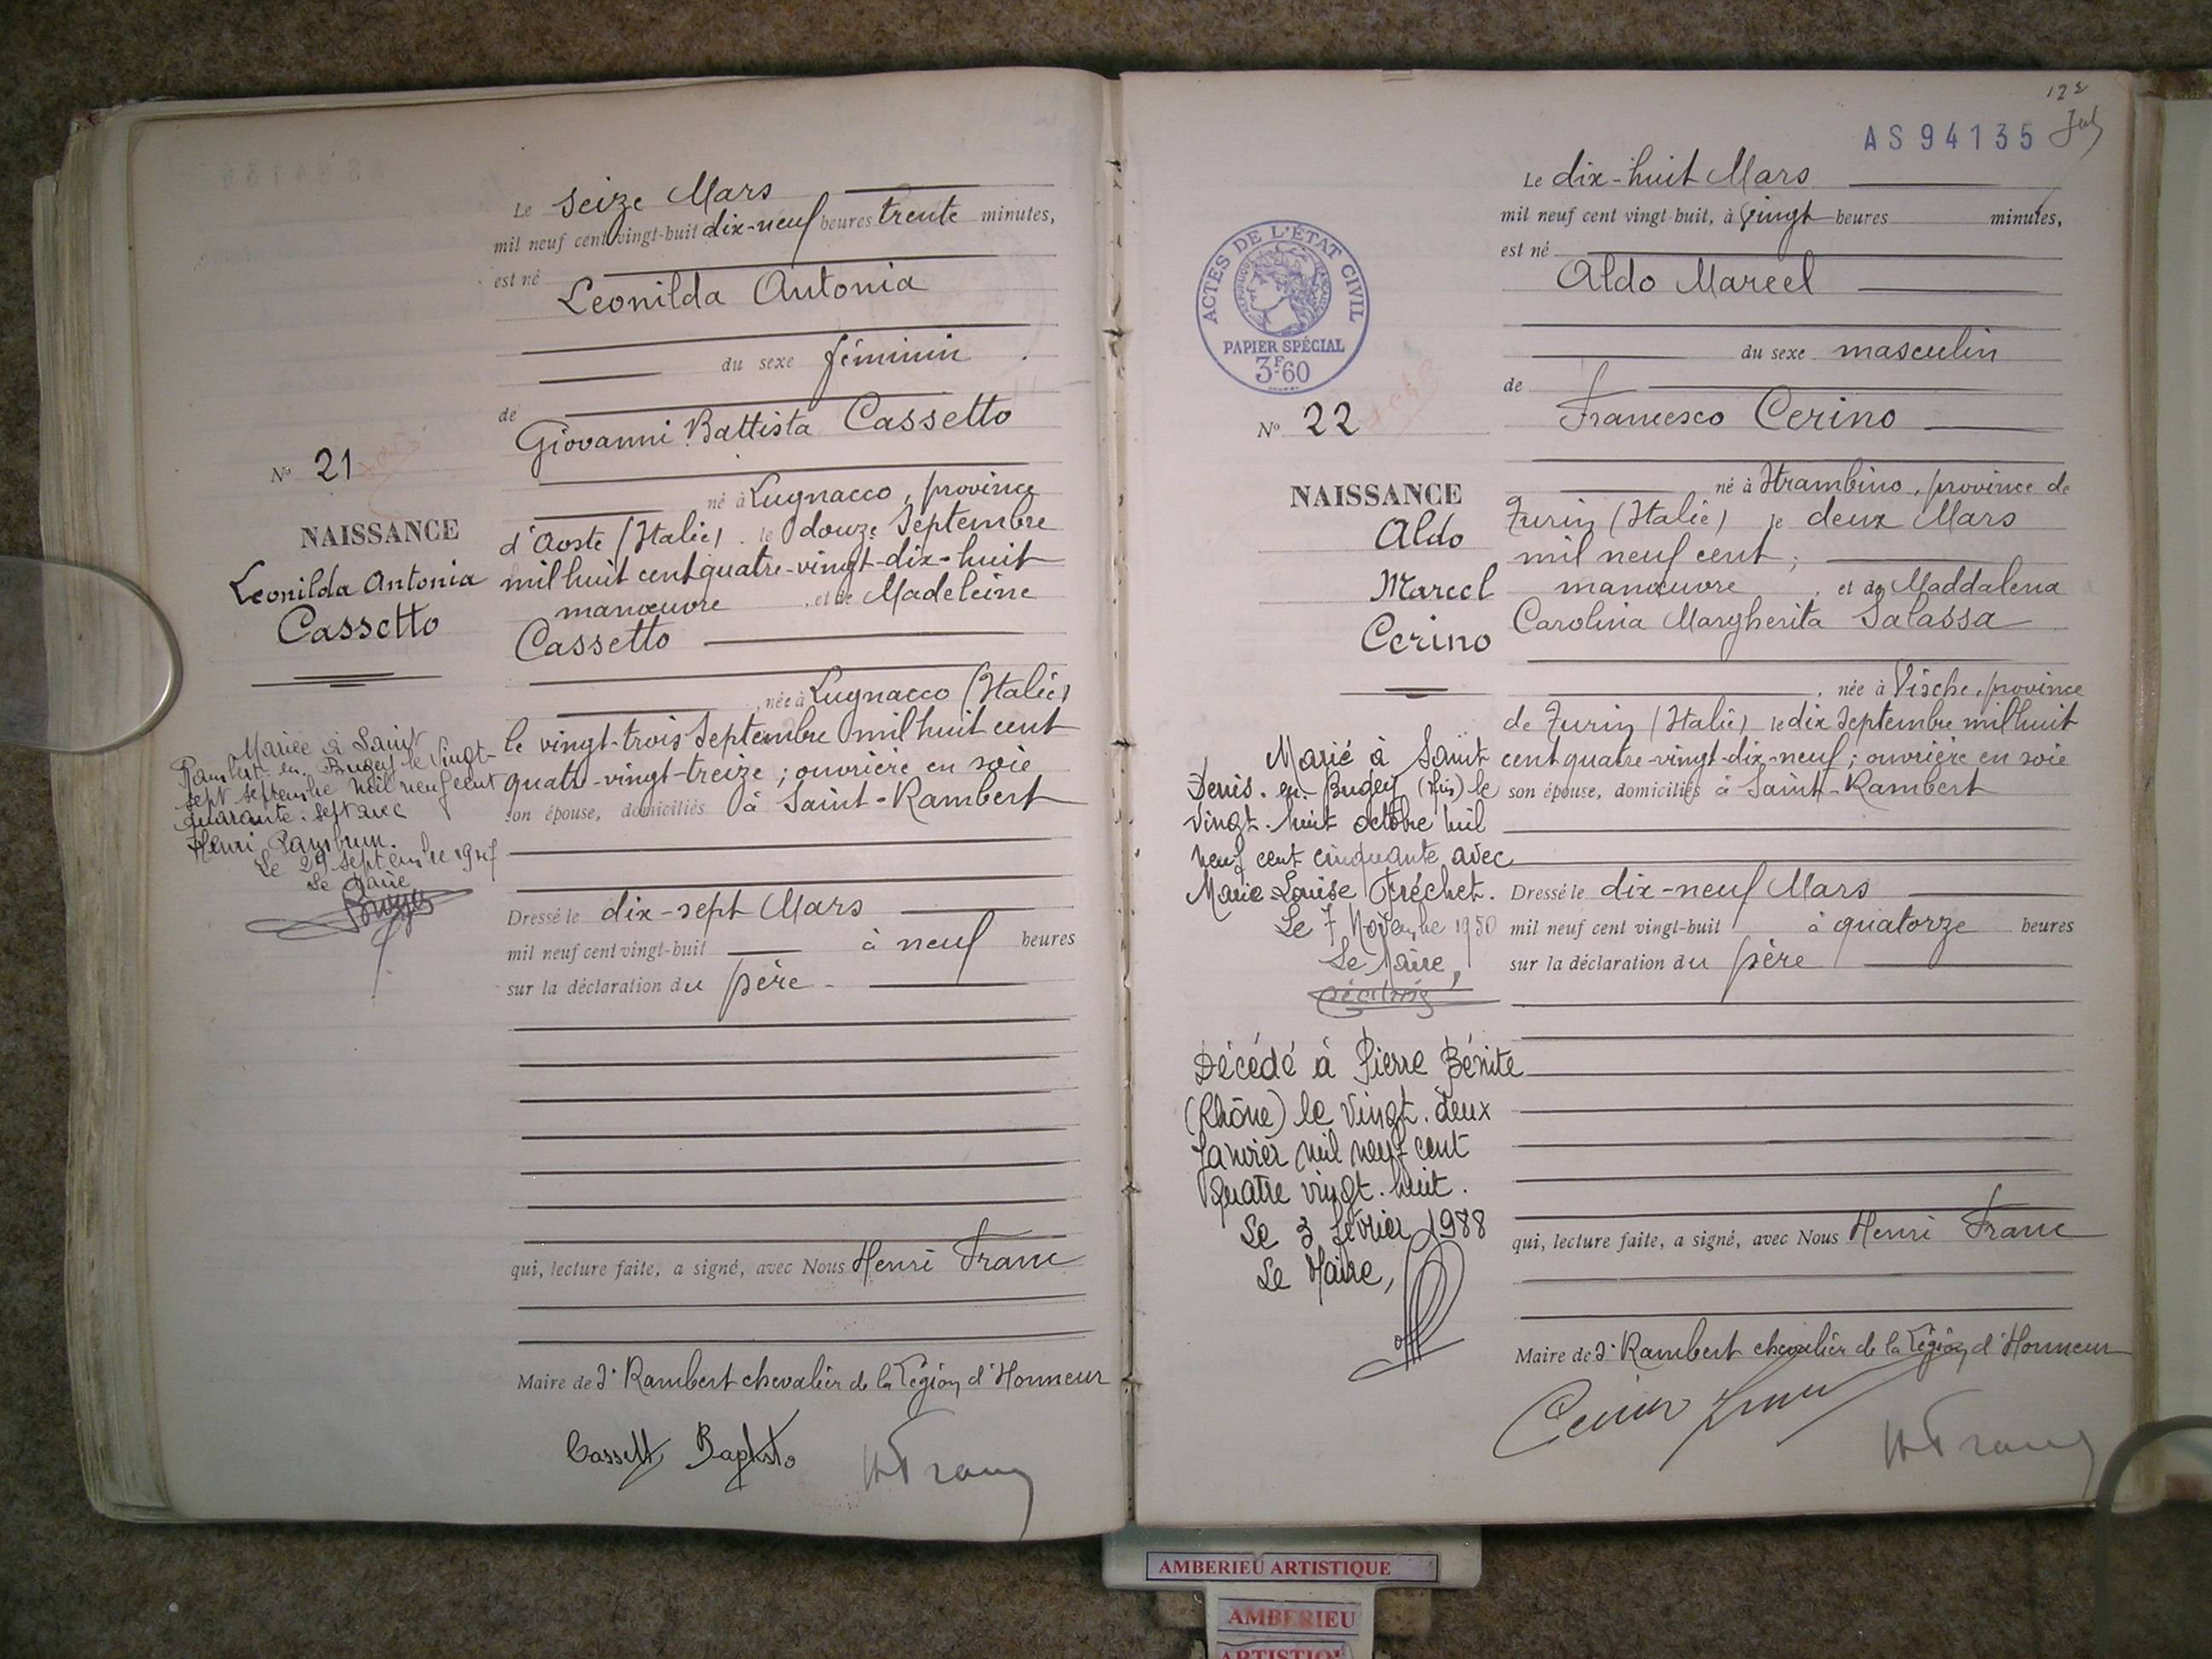 Le seize Mars
mil neuf cent vingt-huit dix-neuf heures trente minutes,
est né
Leonilda Antonia
du sexe féminin
de
Giovanni Battista Cassetto
né à Lugnacco, province
d'Aoste (Italie) le douze Septembre
mil huit cent quatre-vingt-dix-huit
manœuvre, et de Madeleine
Cassetto
, née à Lugnacco (Italie)
le vingt-trois Septembre mil huit cent
quatre-vingt-treize ; ouvrière en soie
son épouse, domiciliés à Saint-Rambert
Dressé le dix-sept Mars
mil neuf cent vingt-huit à neuf heures
sur la déclaration du père
qui, lecture faite, a signé, avec Nous Henri Franc
Maire de St Rambert chevalier de la Légion d'Honneur
Cassetto Baptisto
H Franc
N° 21
NAISSANCE
Leonilda Antonia
Cassetto
Mariée à Saint
Rambert-en-Bugey le vingt-
sept septembre mil neuf cent
quarante-sept avec
Henri
Le 29 septembre 1947
Le Maire
122
AS 94135
ACTES DE L'ÉTAT CIVIL
RÉPUBLIQUE FRANÇAISE
PAPIER SPÉCIAL
3F.60
N° 22
NAISSANCE
Aldo
Marcel
Cerino
Marié à Saint
Denis-en-Bugey (Ain) le
vingt-huit octobre mil
neuf cent cinquante avec
Marie-Louise Fréchet.
Le 7 Novembre 1950
Le Maire,
Décédé à Pierre Bénite
(Rhône) le vingt-deux
Janvier mil neuf cent
quatre vingt-huit.
Le 3 février 1988
Le Maire,
Le dix-huit Mars
mil neuf cent vingt-huit, à vingt heures minutes,
est né
Aldo Marcel
du sexe masculin
de
Francesco Cerino
né à Strambino, province de
Turin (Italie) le deux Mars
mil neuf cent ;
manœuvre, et de Maddalena
Carolina Margherita Salassa
, née à Vische, province
de Turin (Italie) le dix Septembre mil huit
cent quatre-vingt-dix-neuf ; ouvrière en soie
son épouse, domiciliés à Saint-Rambert
Dressé le dix-neuf Mars
mil neuf cent vingt-huit à quatorze heures
sur la déclaration du père
qui, lecture faite, a signé, avec Nous Henri Franc
Maire de St Rambert chevalier de la Légion d'Honneur
H Franc
AMBERIEU ARTISTIQUE
AMBERIEU
ARTISTIQUE